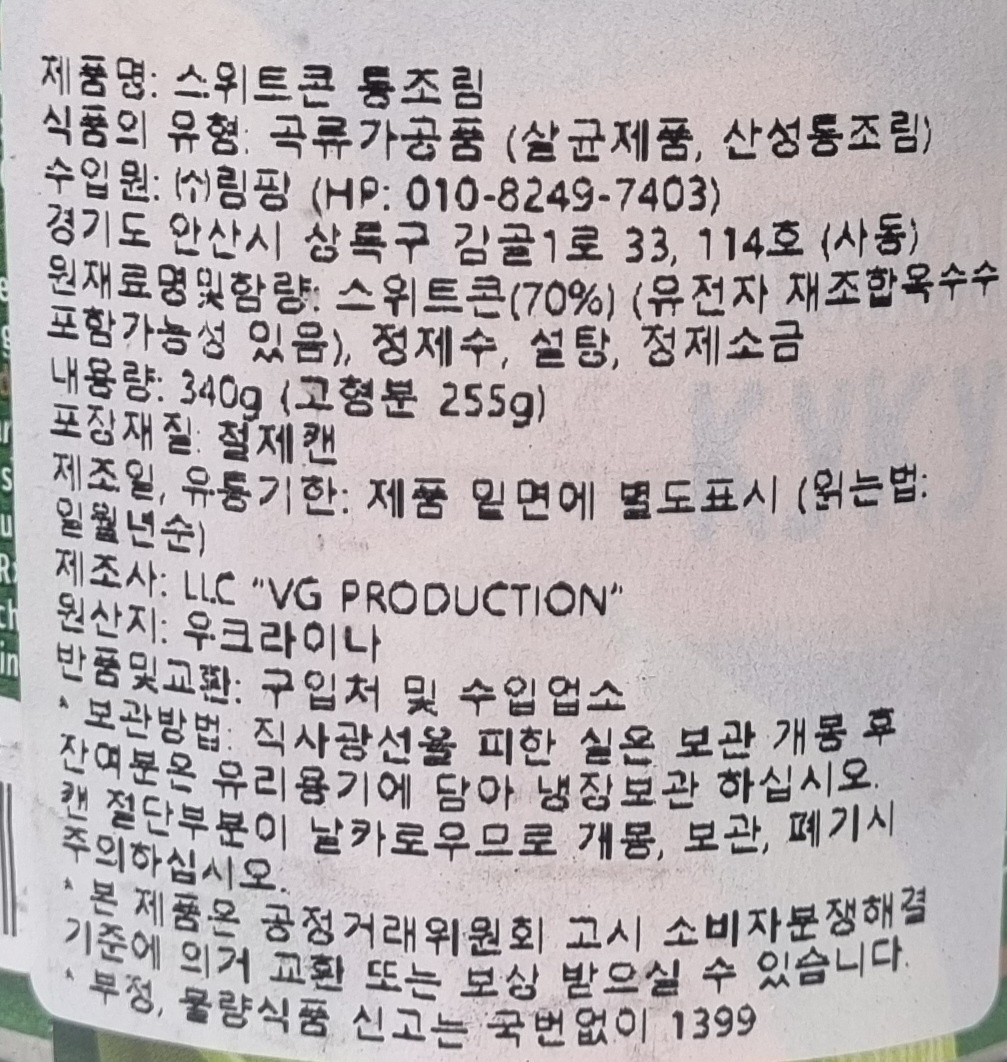 제품명: 스위트콘 통조림
식품의 유형: 곡류가공품 (살균제품, 산성통조림)
수입원: ㈜림핑 (HP: 010-8249-7403)
경기도 안산시 상록구 감골1로 33, 114호 (사동)
원재료명및함량: 스위트콘(70%) (유전자 재조합옥수수
포함가능성 있음), 정제수, 설탕, 정제소금
내용량: 340g (고형분 255g)
포장재질: 철제캔
제조일, 유통기한: 제품 밑면에 별도표시 (읽는법:
일월년순)
제조사: LLC "VG PRODUCTION"
원산지: 우크라이나
반품및교환: 구입처 및 수입업소
* 보관방법: 직사광선을 피한 실온 보관 개봉 후
잔여분은 유리용기에 담아 냉장보관 하십시오.
캔 절단부분이 날카로우므로 개봉, 보관, 폐기시
주의하십시오.
* 본 제품은 공정거래위원회 고시 소비자분쟁해결
기준에 의거 교환 또는 보상 받으실 수 있습니다.
* 부정, 불량식품 신고는 국번없이 1399